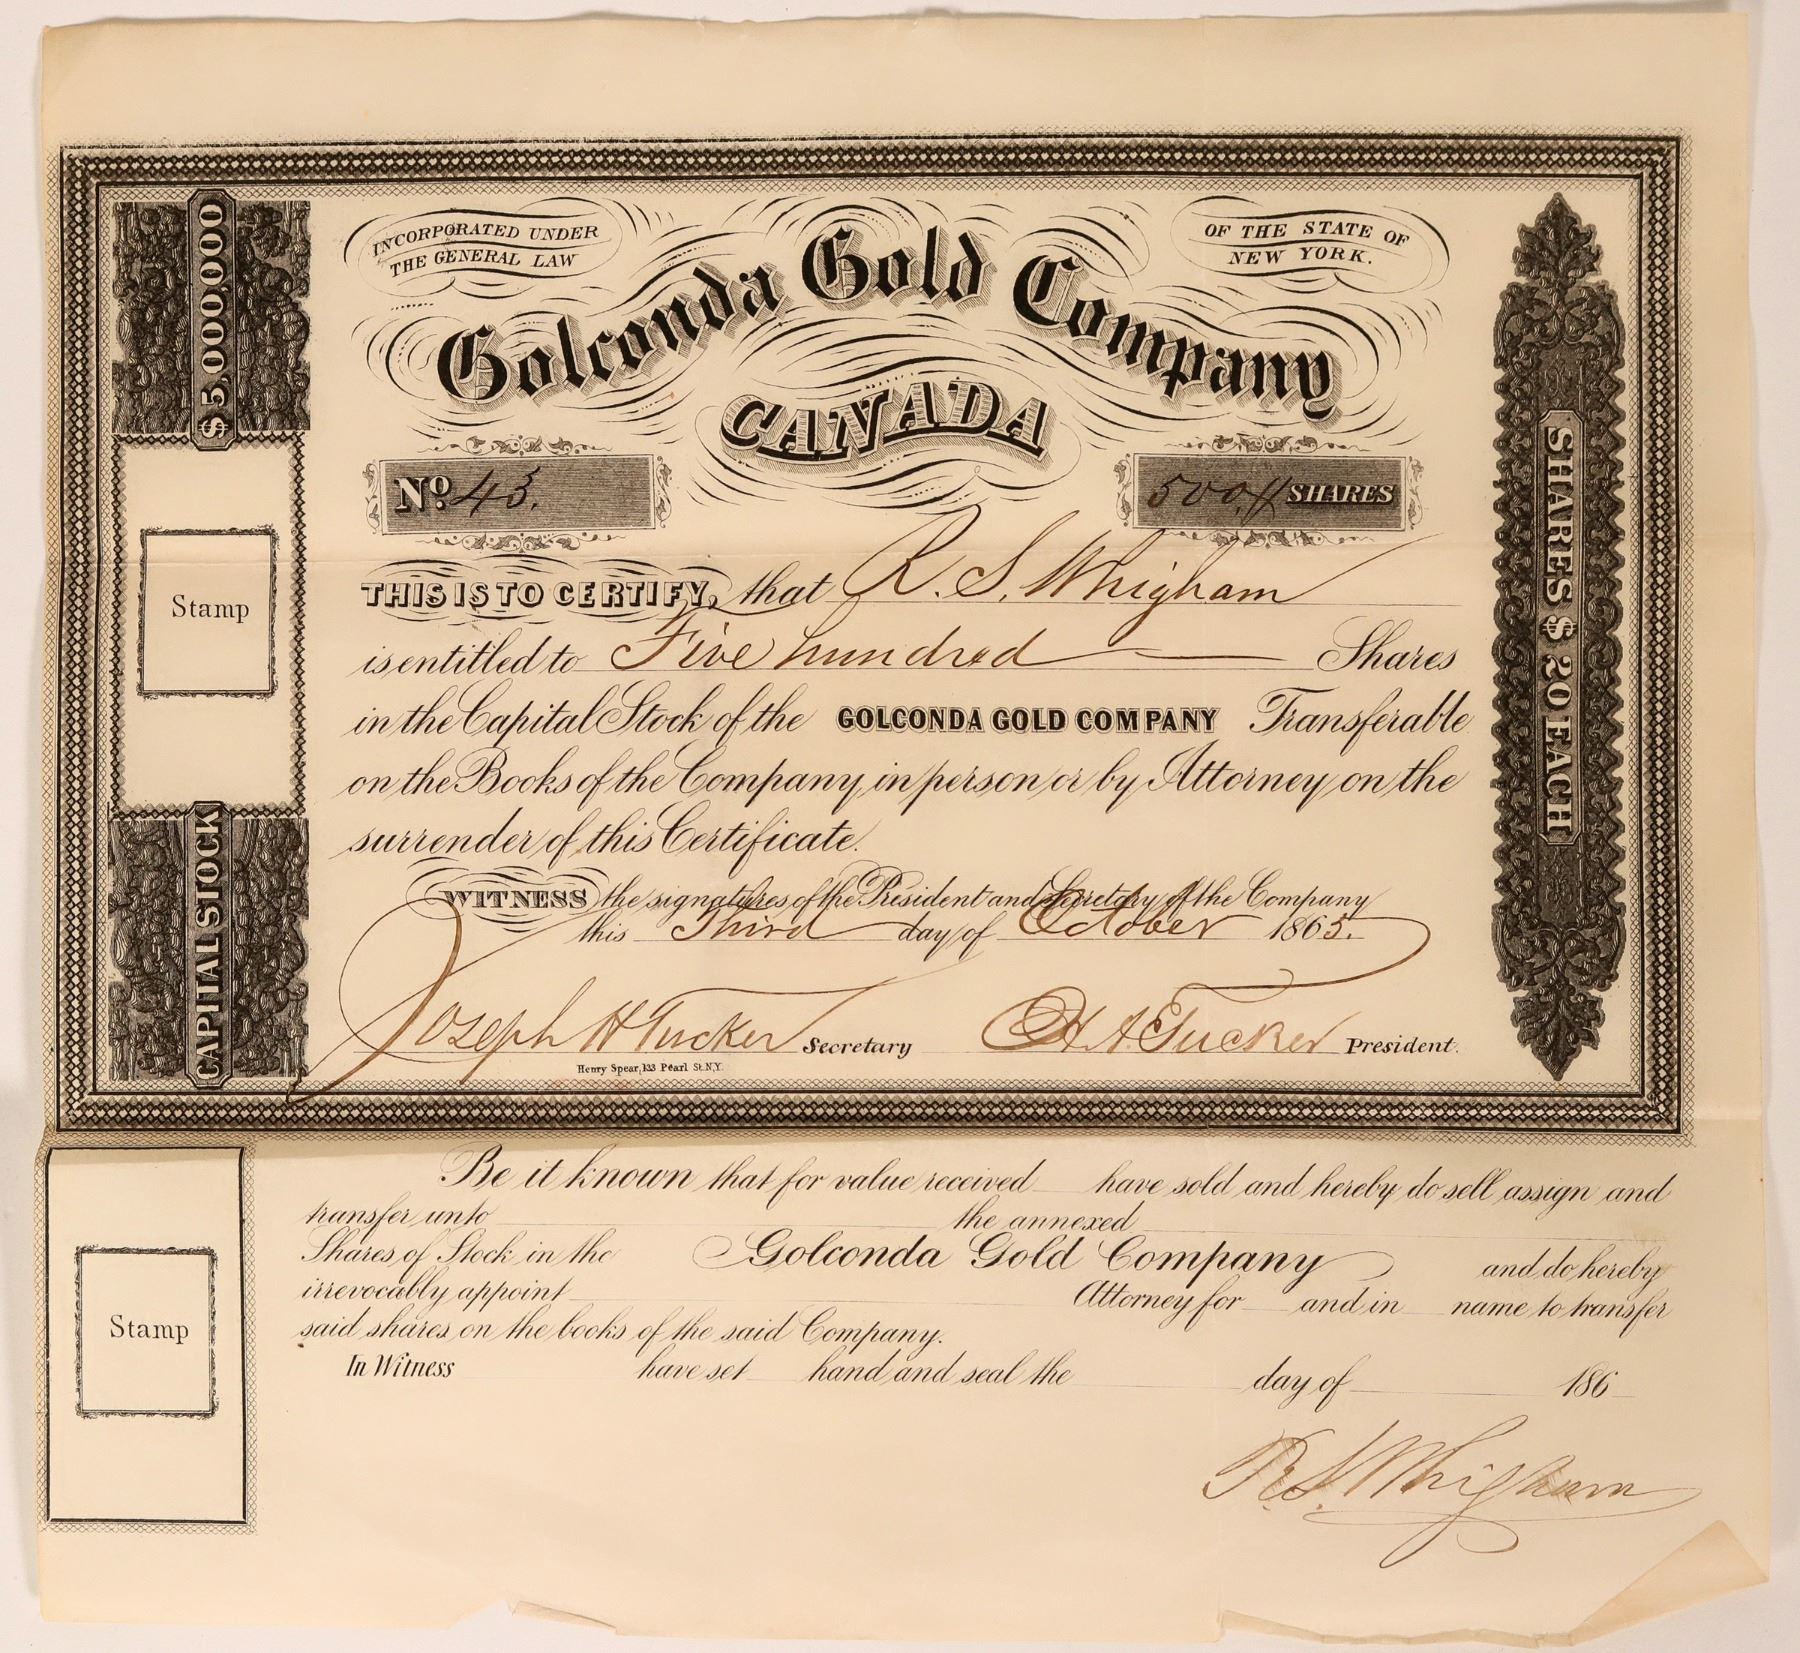 INCORPORATED UNDER
THE GENERAL LAW
OF THE STATE OF
NEW YORK.
Golconda Gold Company
CANADA
$5,000,000
CAPITAL STOCK
Stamp
SHARES $20 EACH
No. 43.
500. SHARES
THIS IS TO CERTIFY, that R. S. Whigham
is entitled to Five hundred Shares
in the Capital Stock of the GOLCONDA GOLD COMPANY Transferable
on the Books of the Company, in person or by Attorney on the
surrender of this Certificate.
WITNESS the signatures of the President and Secretary of the Company
this Third day of October 1865.
Joseph H Tucker Secretary
H. A. Tucker President.
Henry Spear, 133 Pearl St. N.Y.
Be it known that for value received have sold and hereby do sell assign and
transfer unto the annexed
Shares of Stock in the Golconda Gold Company and do hereby
irrevocably appoint Attorney for and in name to transfer
said shares on the books of the said Company.
In Witness have set hand and seal the day of 186
Stamp
R. S. Whigham